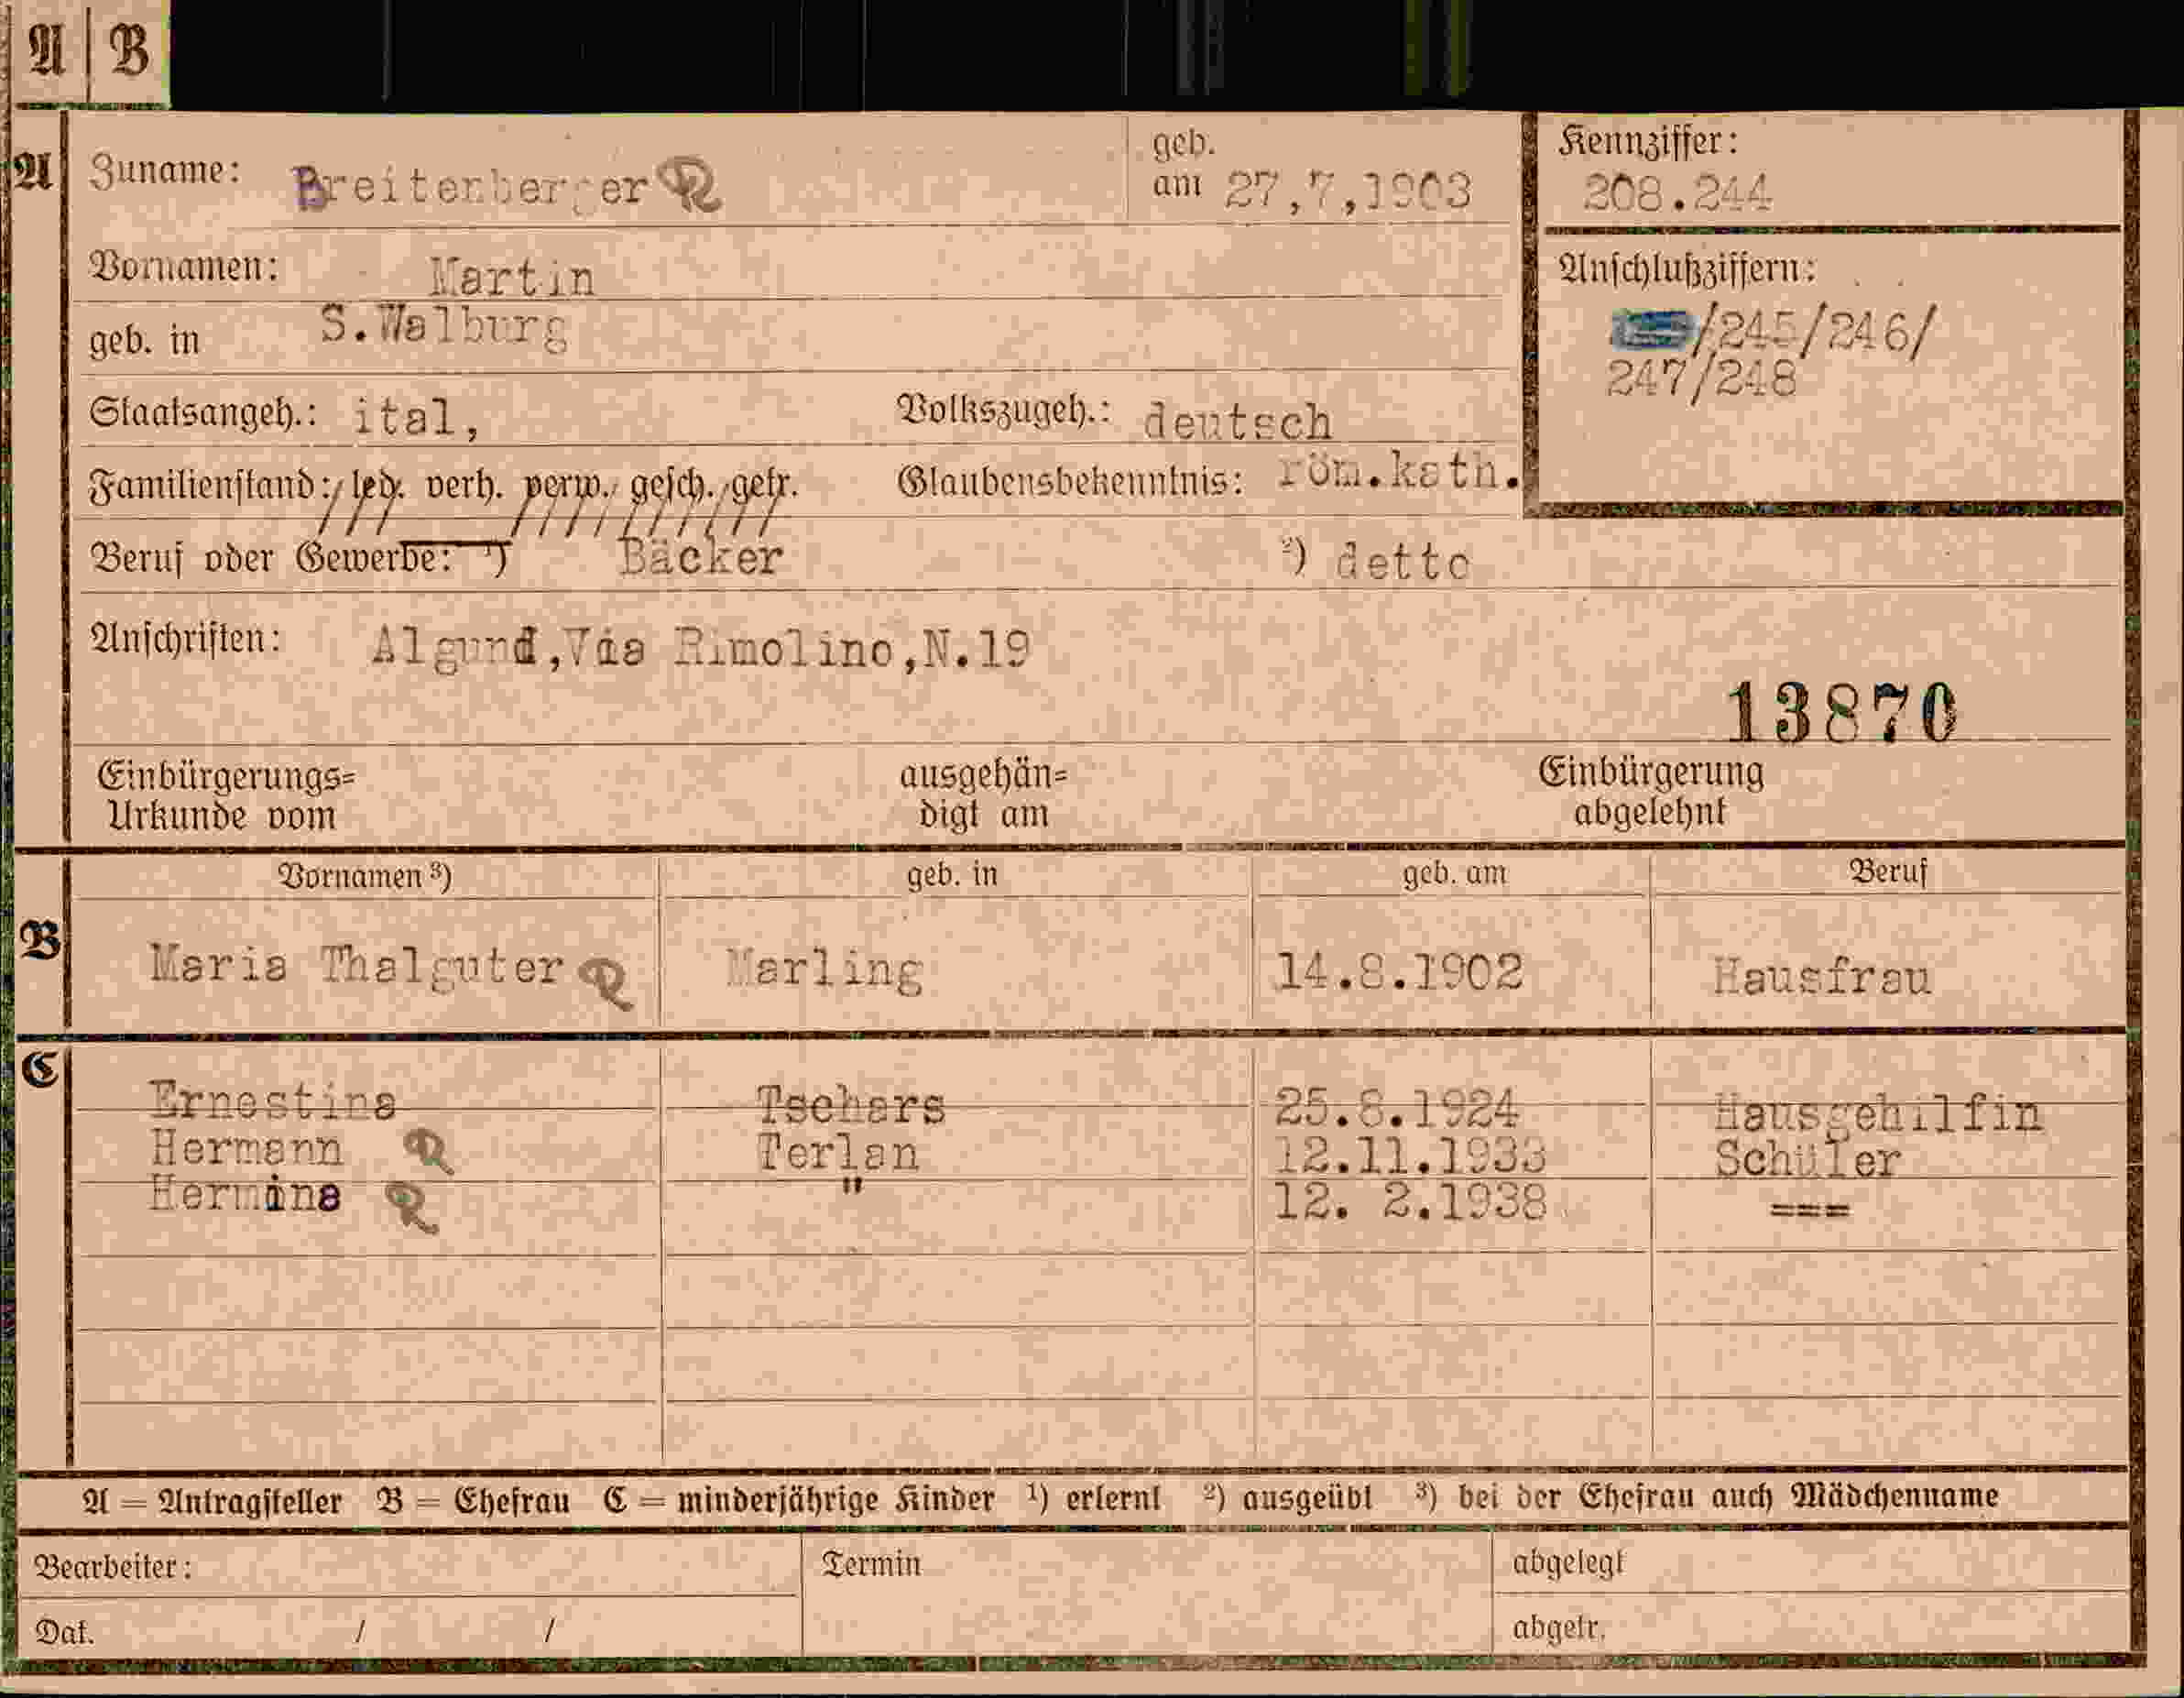 A | B
A Zuname: Breitenberger R geb. am 27,7,1903
Kennziffer: 208.244
Vornamen: Martin
Anschlußziffern: /245/246/
247/248
geb. in S.Walburg
Staatsangeh.: ital, Volkszugeh.: deutsch
Familienstand: led. verh. verw. gesch. getr. Glaubensbekenntnis: röm.kath.
Beruf oder Gewerbe: ¹) Bäcker ²) detto
Anschriften: Algund,Via Rimolino,N.19
13870
Einbürgerungs=
Urkunde vom
ausgehän=
digt am
Einbürgerung
abgelehnt
Vornamen ³) geb. in geb. am Beruf
B Maria Thalguter R Marling 14.8.1902 Hausfrau
C Ernestina Tschars 25.8.1924 Hausgehilfin
Hermann R Terlan 12.11.1933 Schüler
Hermina R " 12. 2.1938 ===
A = Antragsteller B = Ehefrau C = minderjährige Kinder ¹) erlernt ²) ausgeübt ³) bei der Ehefrau auch Mädchenname
Bearbeiter: Termin abgelegt
Dat. / / abgetr.